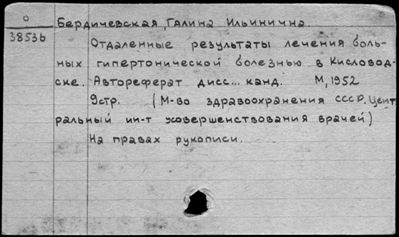 О
38536
Бердичевская, Галина Ильинична
Отдаленные результаты лечения боль-
ных гипертонической болезнью в Кисловод-
ске. Автореферат дисс... канд. М, 1952
9стр. (М-во здравоохранения СССР. Цент
ральный ин-т усовершенствования врачей)
На правах рукописи.